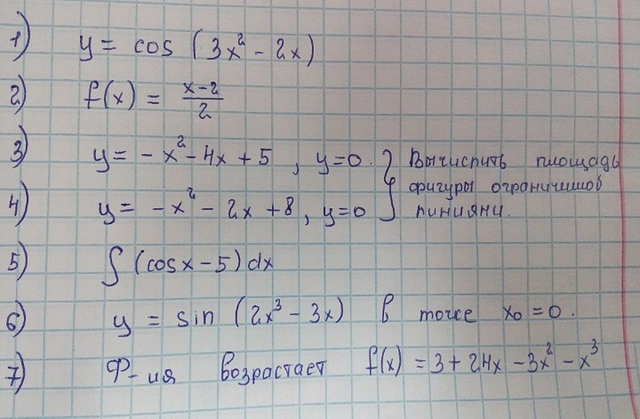 1) y = cos (3x² - 2x)
2) f(x) = (x-2)/2
3) y = -x² - 4x + 5 , y=0. } Вычислить площадь
фигуры ограничинов
4) y = -x² - 2x + 8 , y=0 линияни.
5) ∫ (cosx - 5) dx
6) y = sin (2x³ - 3x) в точке x₀ = 0.
7) Ф-ия возрастает f(x) = 3 + 24x - 3x² - x³